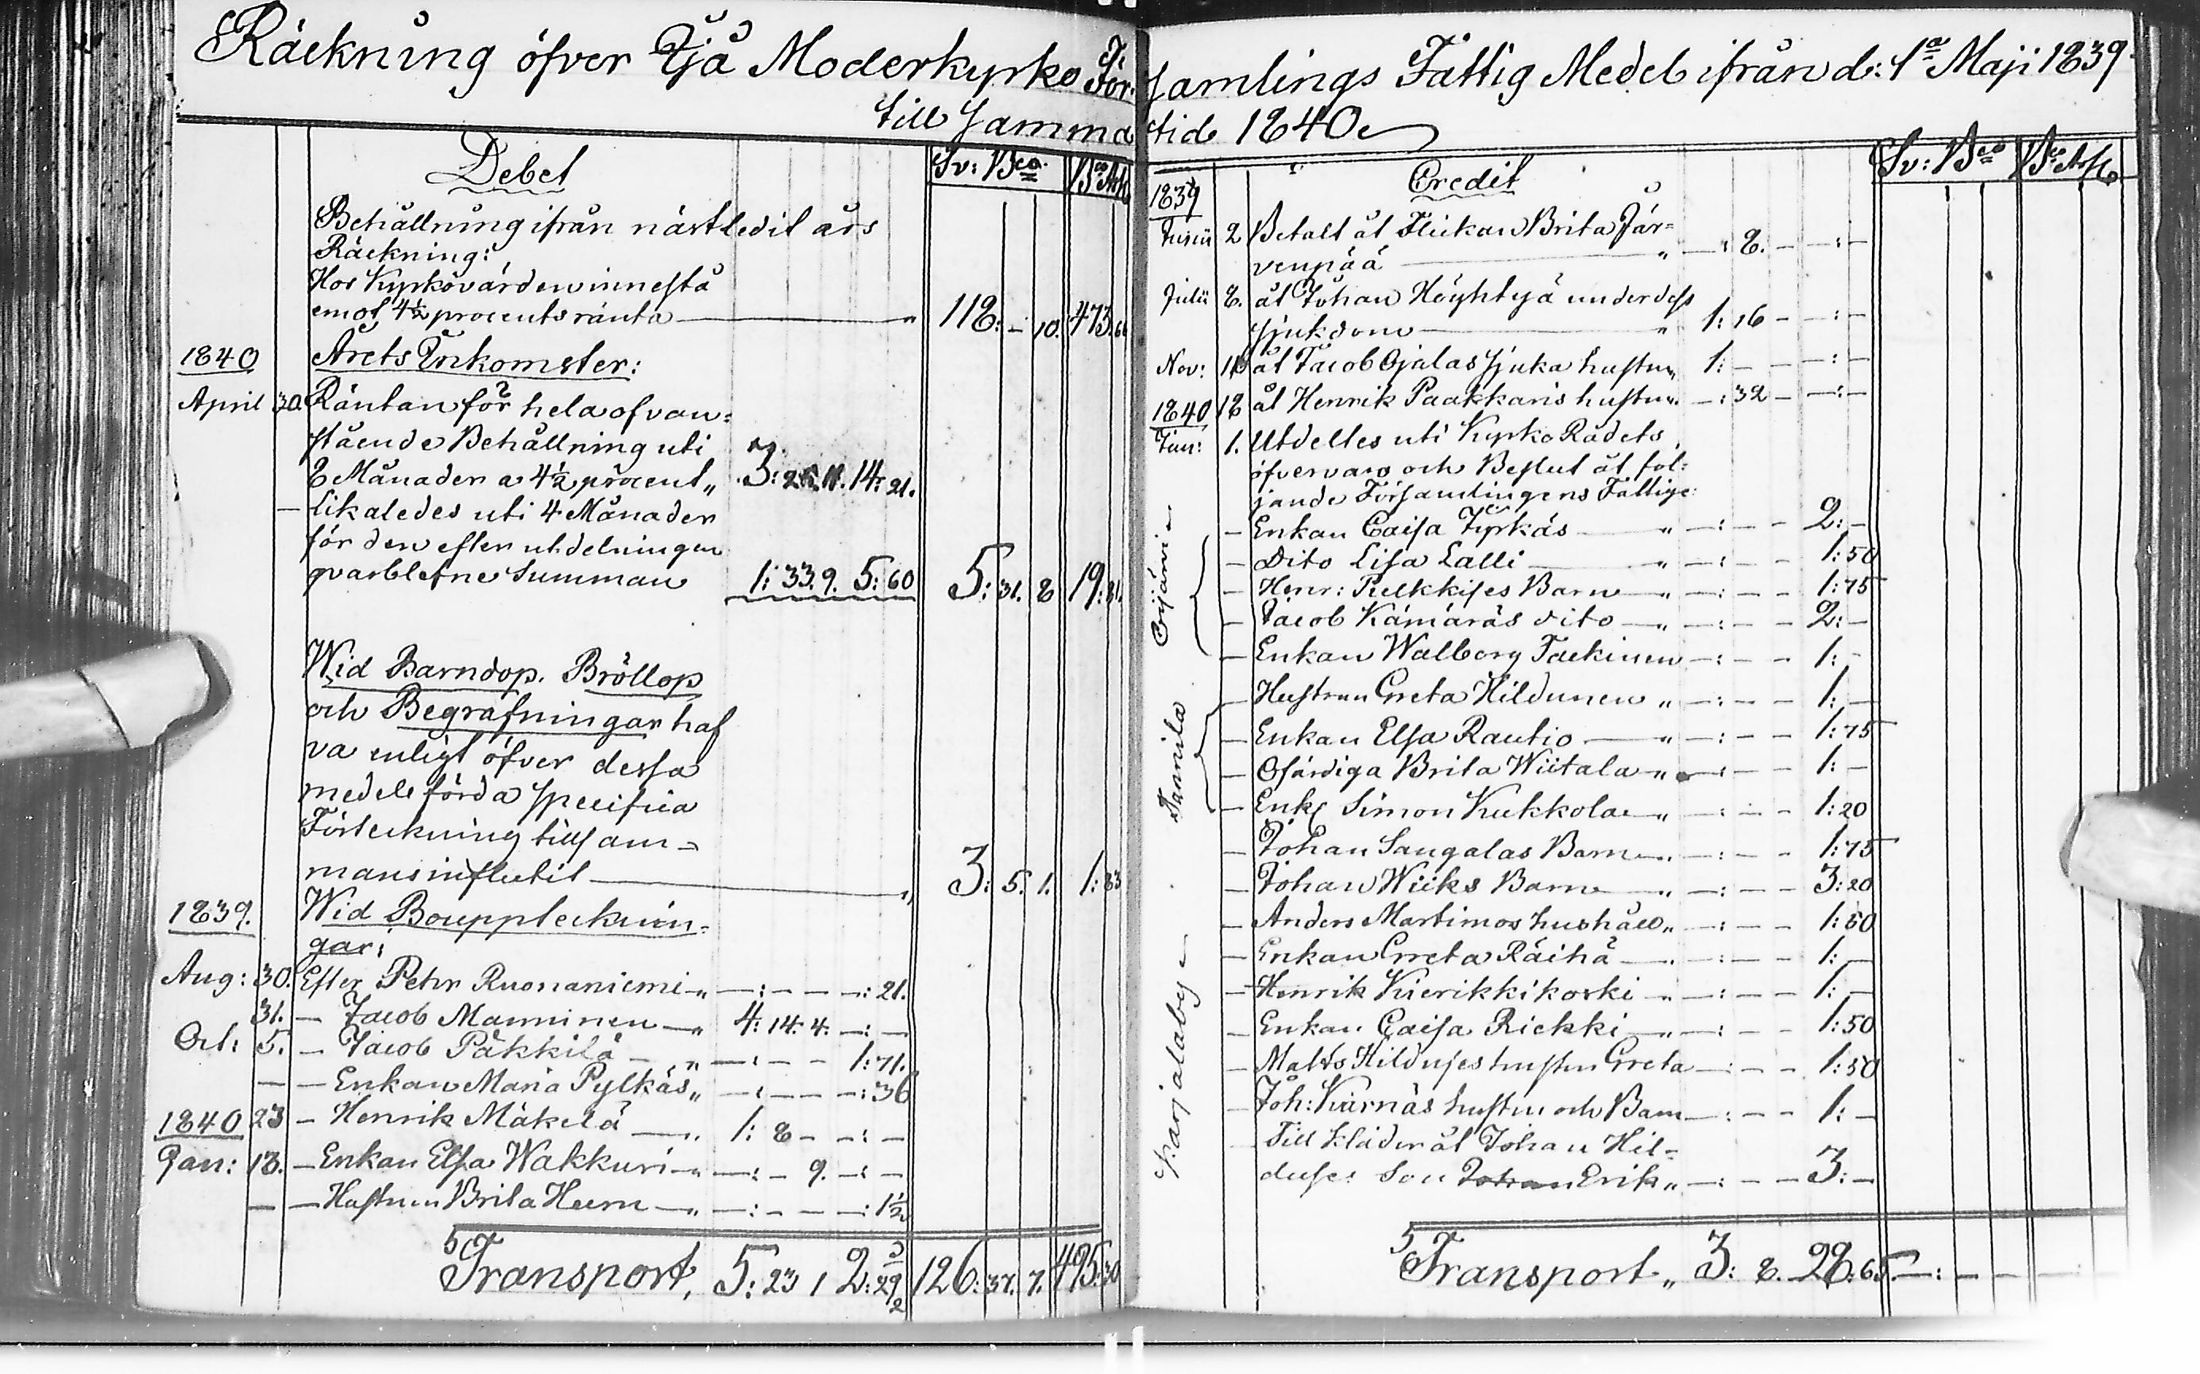 Räckning öfver Ijå Moderkyrko För-
samlings Fattig Medel ifrån d: 1a Maji 1839.
till samma tid 1840
Debet Sv: Bco
Behållning ifrån nästledit års
Räckning:
Hos Kyrkovärden innestå
emot 4½ procents ränta — " 118: - 10. 473: 66
1840 Årets Inkomster:
April 30. Räntan för hela ofvan-
stående Behållning uti
8 Månader a 4½ procent " 3: 14: 21.
— likaledes uti 4 Månader
för den efter utdelningen
qvarblefne Summan 1: 33. 9. 5: 60 5: 31. 8 19: 81.
Wid Barndop. Bröllop
och Begrafningar haf
va enligt öfver dessa
medel förda specifica
Förteckning tillsam-
mans influtit — " 3: 5. 1. 1: 83
1839. Wid Boupptecknin-
gar:
Aug: 30. Efter Petr Ruonaniemi — " — : — — — : 21.
31. — Jacob Manninen — " 4: 14. 4. — : —
Oct: 5. — Jacob Päkkilä — " — : — — 1: 71.
— — Enkan Maria Pylkäs " — : — — — : 36
1840 23 — Henrik Mäkelä — " 1: 8 - - : —
Jan: 18. — Enkan Elsa Wakkuri — " — : — 9. — : —
— — Hustrun Brita Heern — " — : — — — : 1½
Transport, 5: 23 1 2: 29½ 126: 37. 7. 495: 30
Credit Sv: Bco
1839
Junii 2 Betalt åt Flickan Brita Jär-
venpää — " — : 8. — — : —
Julii 8. åt Johan Höyhtyä under dess
sjukdom — " 1: 16 — — : —
Nov: åt Jacob Ojalas sjuka hustru " 1: — — — : —
1840 18 åt Henrik Paakkaris hustru " — : 32 — — : —
Jan: 1. Utdeltes uti Kyrko Rådets
öfvervaro och Beslut åt föl-
jande Församlingens Fattige:
— Enkan Caisa Tyrkäs — " — : — — 2: —
— Dito Lisa Lalli — " — : — — 1: 50
— Henr: Pulkkises Barn — " — : — — 1: 75
— Jacob Kämäräs dito — " — : — — 2: —
— Enkan Walborg Tackinen — : — — 1: —
— Hustrun Greta Hildunen " — : — — 1: —
— Enkan Elsa Rautio — " — : — — 1: 75
— Ofärdiga Brita Wiitala " — : — — 1: —
— Enk Simon Kukkola — " — : — — 1: 20
— Johan Saugalas Barn — " — : — — 1: 75
— Johan Wiiks Barn — " — : — — 3: 20
— Anders Martimos hushåll " — : — — 1: 50
— Enkan Greta Räihä — " — : — — 1: —
— Henrik Kierikkikoski — " — : — — 1: —
— Enkan Caisa Riekki — " — : — — 1: 50
— Matts Hilduses hustru Greta — : — — 1: 50
— Joh: Kärnäs hustru och Barn — : — — 1: —
Till kläder åt Johan Hil-
duses Son Johan Erik " — : — — 3: —
Transport " 3: 8. 28: 65. — : — —
Tannila
Karjalaby